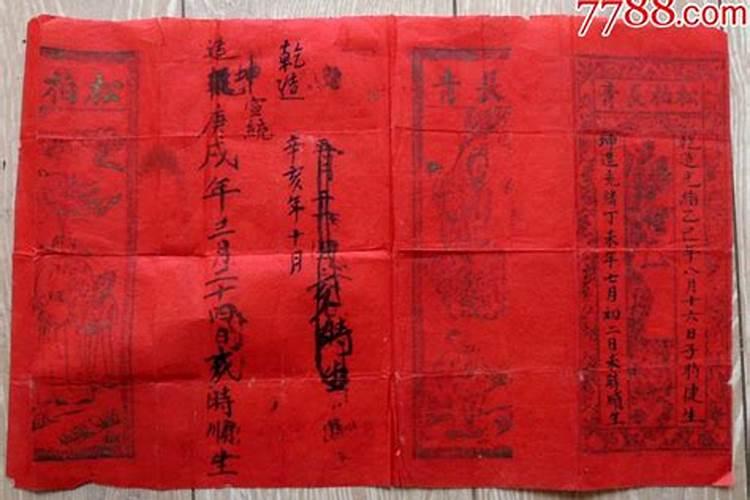 7788.com
松柏長青
乾造光緒乙巳年八月十六日子時健生
坤造光緒丁未年七月初二日未時順生
長青
亥時生
乾造
辛亥年十月
坤宣統
造庚戌年三月二十四日亥時順生
松柏